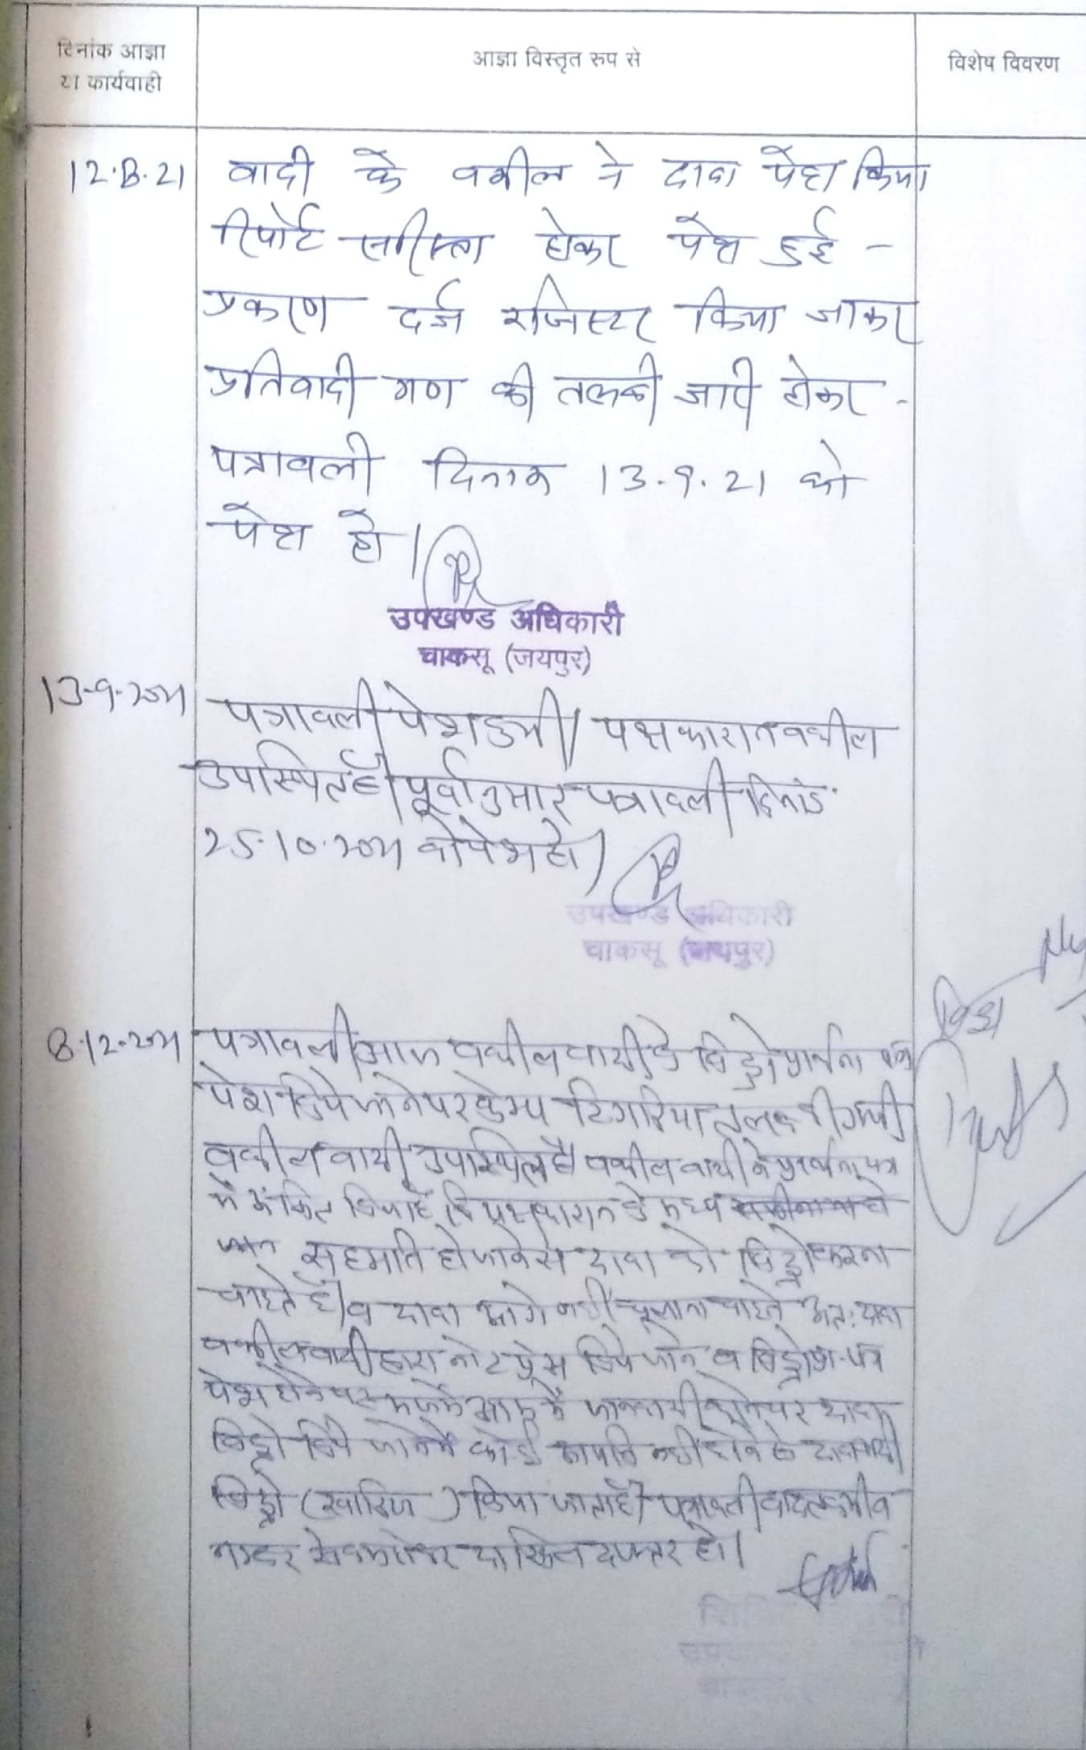 दिनांक आज्ञा
या कार्यवाही
आज्ञा विस्तृत रुप से
विशेष विवरण
12.8.21
वादी के वकील ने दावा पेश किया
रिपोर्ट सरिस्ता होकर पेश हुई -
प्रकरण दर्ज रजिस्टर किया जाकर
प्रतिवादी गण की तलबी जारी होकर -
पत्रावली दिनांक 13.9.21 को
पेश हो।
उपखण्ड अधिकारी
चाकसू (जयपुर)
13-9-2021
पत्रावली पेश हुयी। पक्षकारान वकील
उपस्थित है। पूर्वानुसार पत्रावली दिनांक
25.10.2021 को पेश हो।
उपखण्ड अधिकारी
चाकसू (जयपुर)
8.12.2021
पत्रावली आज वकील वादी के विड्रो प्रार्थना पत्र
पेश किये जाने पर केम्प टिगरिया तलब की गयी
वकील वादी उपस्थित है। वकील वादी ने प्रार्थना पत्र
में अंकित किया है कि पक्षकारान के मध्य
सहमति हो जाने से दावा को विड्रो करना
चाहते है। व दावा आगे नहीं चलाना चाहते अतः दावा
वकील वादी द्वारा नोट प्रेस किये जाने व विड्रो प्रा. पत्र
पेश होने पर दावा
विड्रो किये जाने में कोई आपत्ति नहीं होने से दावा वादी
विड्रो (खारिज) किया जाता है। पत्रावली
नम्बर से कम होकर दाखिल दफ्तर हो।